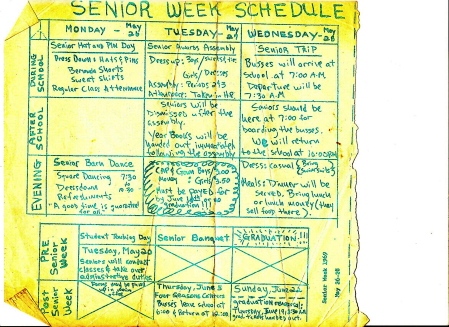 SENIOR WEEK SCHEDULE
MONDAY - May 26
TUESDAY - May 27
WEDNESDAY - May 28
DURING SCHOOL
Senior Hat and Pin Day
Dress Down: Hats & Pins
Bermuda Shorts
Sweat shirts
Regular Class Attendance
Senior Awards Assembly
Dress up: Boys / suits & tie
Girls / Dresses
Assembly: Periods 2 & 3
Attendance: Taken in H.R.
SENIOR TRIP
Busses will arrive at
school at 7:00 A.M.
Departure will be
7:30 A.M.
AFTER SCHOOL
Seniors will be
Dismissed after the
assembly.
Year Books will be
handed out immediately
following the assembly
Seniors should be
here at 7:00 for
boarding the busses.
We will return
to the school at 10:00 PM
EVENING
Senior Barn Dance
Square Dancing 7:30
Dress down to 10:30
Refreshments
"A good time is guaranteed
for all."
CAP & Gown Boys 3.00
Money Girls 3.50
Must be payed for
by June 16th or no
graduation!!!
Dress: casual (Bring swimsuits)
Meals: Dinner will be
served. Bring lunch
or lunch money (they
sell food there)
PRE Senior Week
Student Teaching Day
Tuesday, May 20
Seniors will conduct
classes & take over
administrative duties
Senior Banquet
GRADUATION!!!
Post Senior Week
Dues may be paid
up to
Thursday, June 5
Four Seasons Center
Busses leave school at
6:00 & Return at 12:00
Sunday, June 22
graduation rehearsal
Thursday, June 19, 8:30 AM
grad tickets handed out.
Senior Week 1969
May 26-28